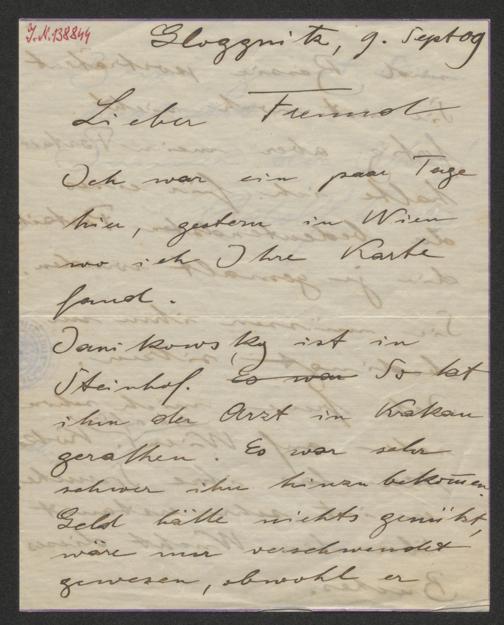 J.N. 138844
Gloggnitz, 9. Sept 09
Lieber Freund
Ich war ein paar Tage
hier, gestern in Wien
wo ich Ihre Karte
fand.
Janikowsky ist in
Steinhof. Es war So hat
ihm der Arzt in Krakau
gerathen. Es war sehr
schwer ihn hinzubekom̅en.
Geld hätte nichts genützt,
wäre nur verschwendet
gewesen, obwohl er